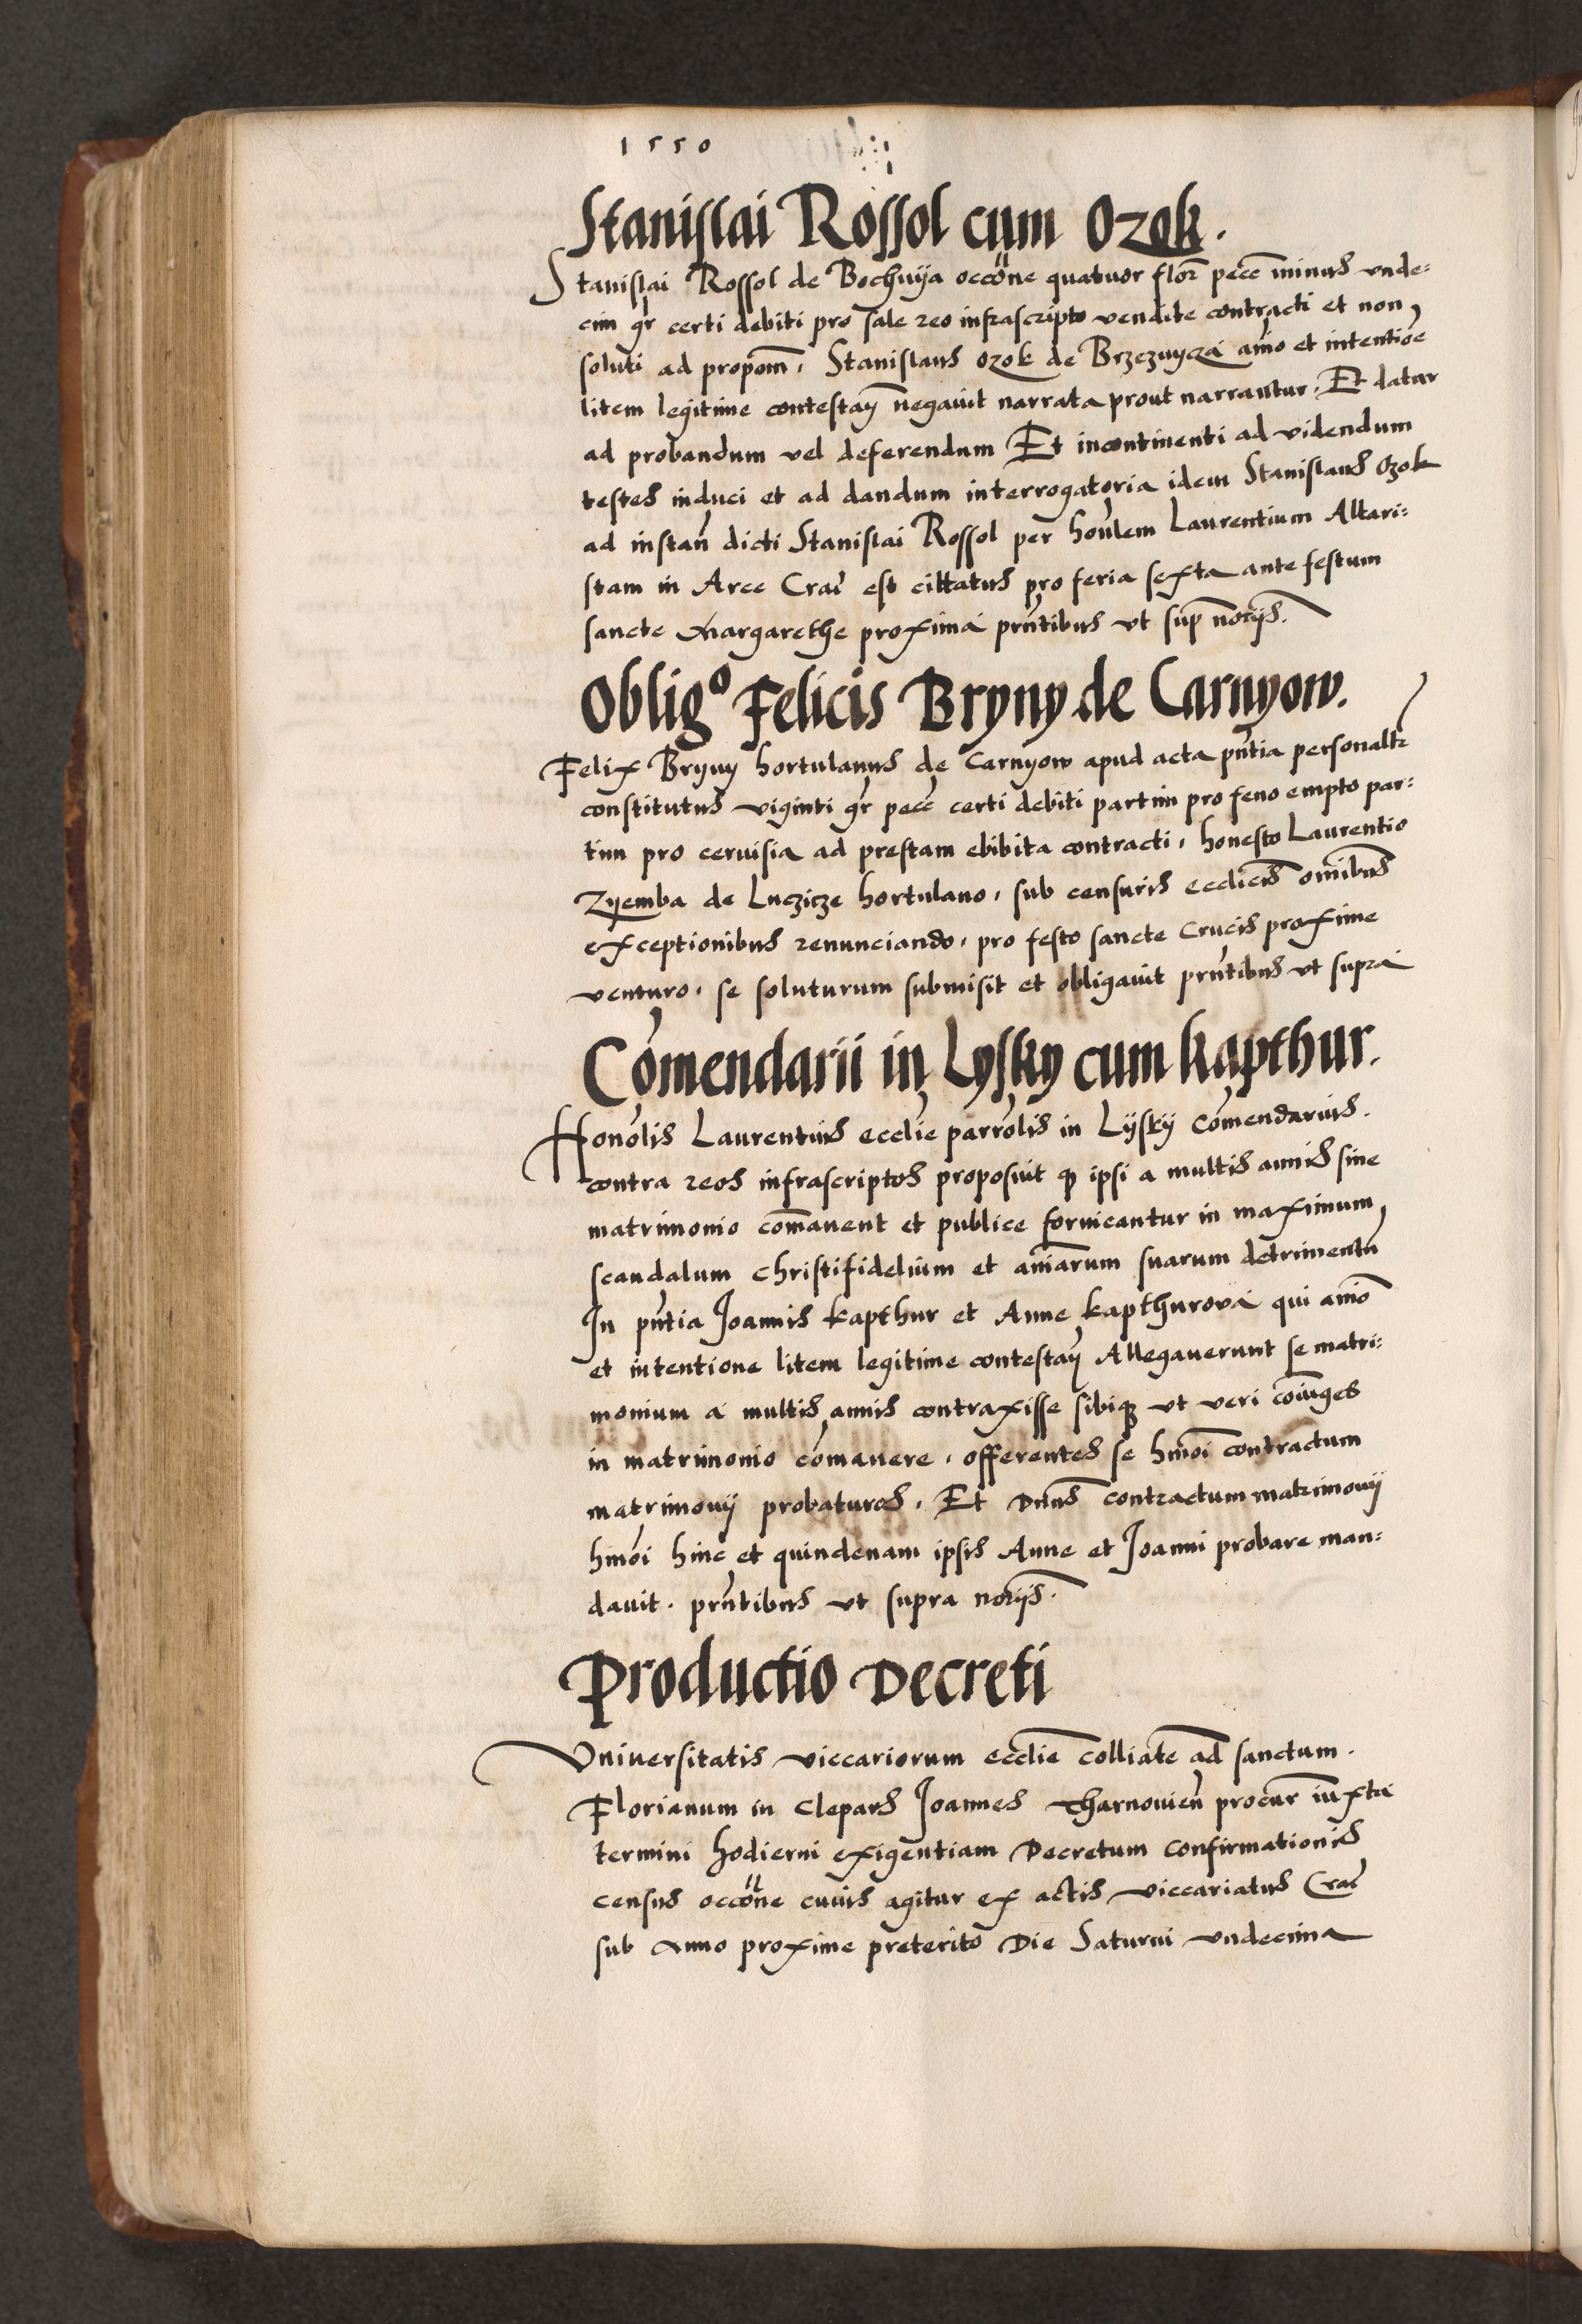 1550
Stanislai Rossol cum Ozok.
Stanislai Rossol de Bochnya occõne quatuor flor pecc minus unde:
cim gr certi debiti pro sale reo infrascripto vendite contracti et non
soluti ad propom̃, Stanislaus Ozok de Brzeznycza aĩo et intentiõe
litem legitime contestan̄ negavit narrata prout narrantur. Et datur
ad probandum vel deferendum Et incontinenti ad videndum
testes induci et ad dandum interrogatoria idem Stanislaus Ozok
ad instan̄ dicti Stanislai Rossol per hon̄lem Laurentium Altari:
stam in Arce Crac̄ est cittatus pro feria sexta ante festum
sancte Margarethe proxima pñtibus ut sup̄ noriis.
Obligº Felicis Bryny de Carnyow.
Felix Bryny hortulanus de Carnyow apud acta pñtia personaltr
constitutus viginti gr pecc̄ certi debiti partim pro feno empto par:
tim pro cervisia ad prestam ebibita contracti, honesto Laurentio
Zyemba de Luczicze hortulano, sub censuris eccliĉis om̄ibus
exceptionibus renunciando, pro festo sancte Crucis proxime
venturo, se soluturum submisit et obligavit pñtibus ut supra
Com̄endarii in Lysky cum Kapthur.
Honor̄lis Laurentius ecclie parro̅lis in Lysky Com̄endarius.
contra reos infrascriptos proposuit ꝙ ipsi a multis annis sine
matrimonio com̄anent et publice fornicantur in maximum
scandalum christifidelium et anīarum suarum detrimentū
In pñtia Joannis Kapthur et Anne Kapthurova qui anīo
et intentione litem legitime contestan̄ Allegaverunt se matri:
monium a multis annis contraxisse sibiqꝫ ut veri coniuges
in matrimonio com̄anere, offerentes se hmōi contractum
matrimonij probaturos, Et Dñus contractum matrimonij
hmōi hinc et quindenam ipsis Anne et Joanni probare man:
davit. pñtibus ut supra noriis.
Productio Decreti
Universitatis viccariorum ecclie colliate ad sanctum.
Florianum in Clepars Joannes Tharnovien̄ procur iuxta
termini hodierni exigentiam Decretum confirmationis
census occõne cuius agitur ex actis viccariatus Crac̄
sub Anno proxime preterito Die Saturni undecima